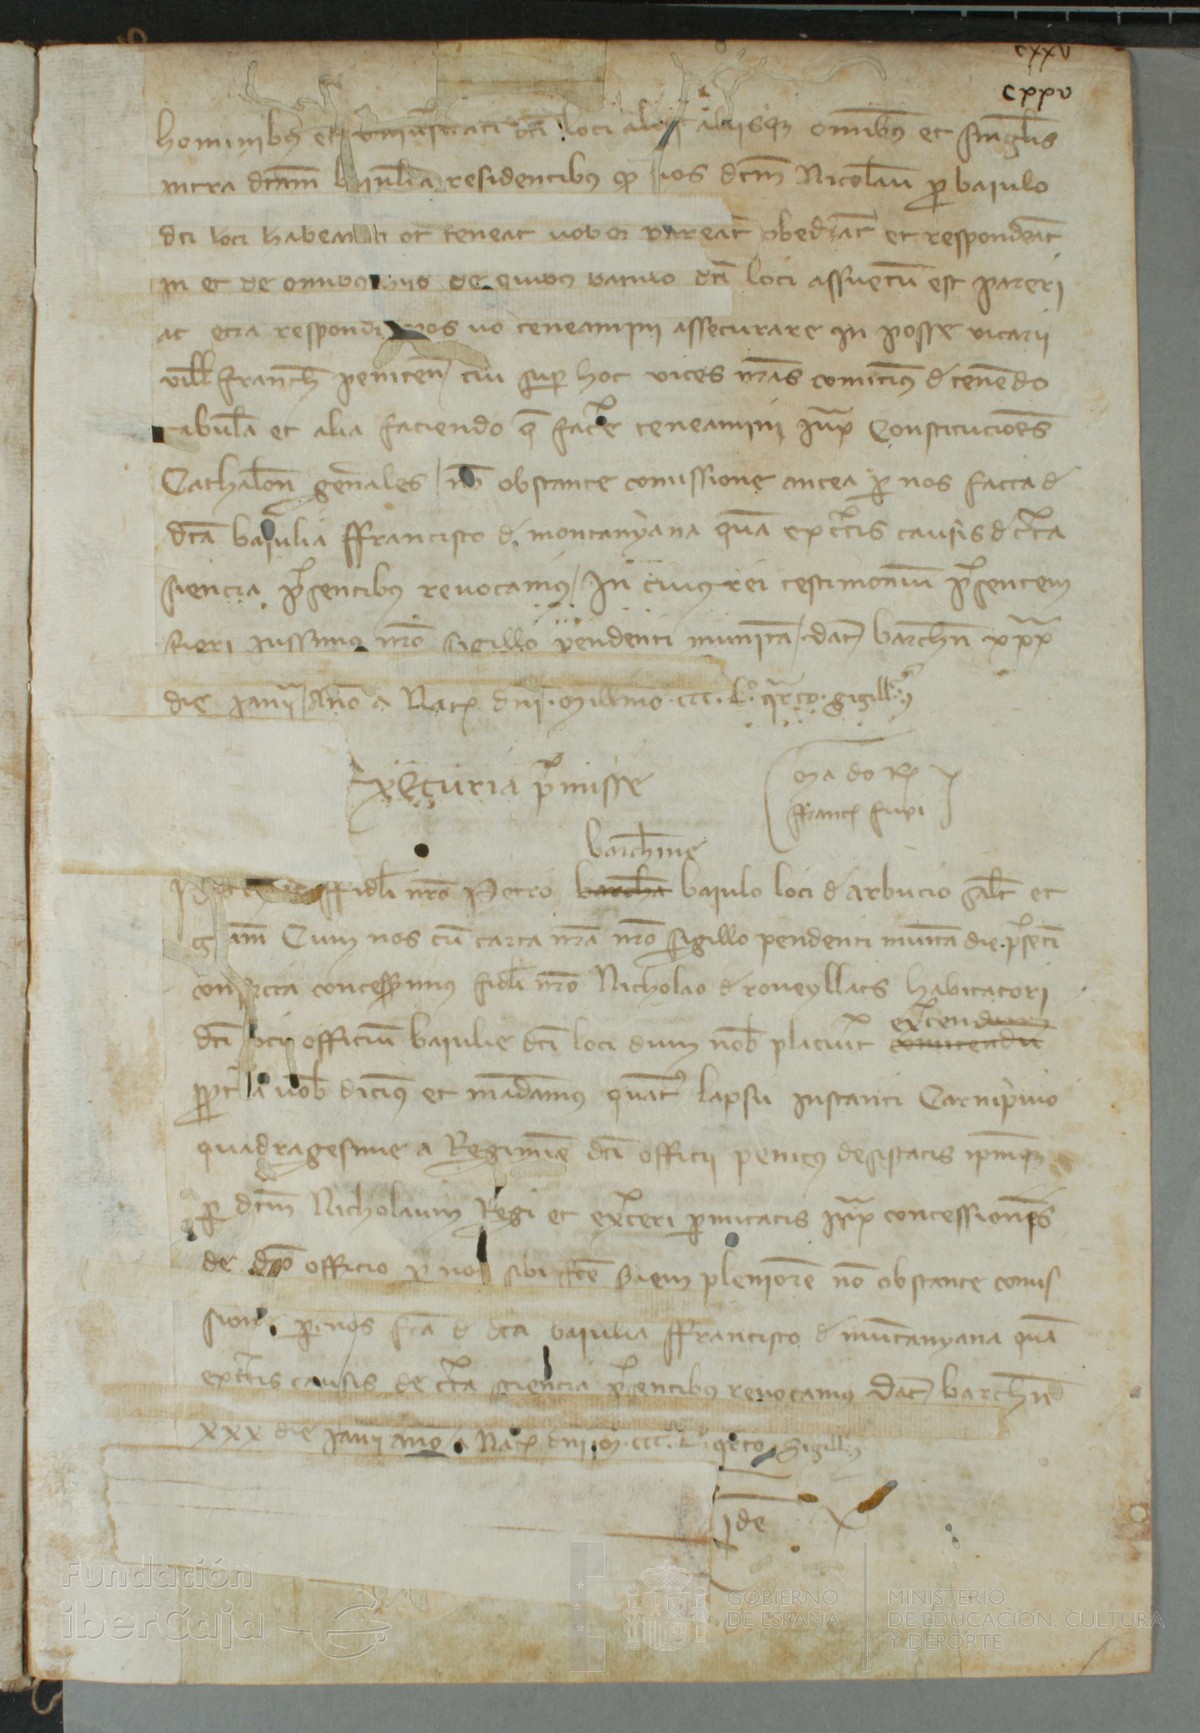 cxxv
cxxv
hominibus et dci loci aliisq omnibus et singulis
intra dcam baiuliam residentibus q vos dcm Nicolau p baiulo
dci loci habeant et teneat vobis pareat obediat et respondeat
in et de omnibus hiis de quibus baiulo dci loci assuetu est pareri
ac etia responderi vos vo teneamini assecurare in posse vicarii
ville franch peniten cui sup hoc vices nras comittimus de tenendo
tabula et alia faciendo q facere teneamini iux Constituciones
Cathalon genales no obstante comissione antea p nos facta de
dca baiulia ffrancisco de montanyana qua ex certis causis de certa
sciencia psentibus revocamus In cuius rei testimoniu psentem
fieri iussimus nro sigillo pendenti munita dat barchn xxx
die Januarii Anno a Nat dni millimo ccc L quarto sigill
Executoria pmisse
Ma do Rx
franc fuxi
barchinone
Petrus ffideli nro Petro barcha baiulo loci de Arbucio salt et
gram Cum nos cu carta nra nro sigillo pendenti munita die pseti
confecta concesserimus fideli nro Nicholao de roveyllats habitatori
dci loci officiu baiulie dci loci dum nob placuit exercendum comitendu
ppterea vob dicimus et mandamus quat lapsu instanti Carnipvio
quadragesime a Regimine dci officii penitus desistatis ipmq
p dcm Nicholaum Regi et exerceri pmitatis iux concessionis
de dco officio p nos sibi fce seriem pleniore no obstante comis
sione p nos fca de dca baiulia ffrancisco de muntanyana qua
ex certis causis de certa sciencia psentibus revocamus Dat barchn
xxx die Januarii anno a Nat dni M ccc L quarto Sigill
Ide
Fundación
iberCaja
GOBIERNO
DE ESPAÑA
MINISTERIO
DE EDUCACIÓN, CULTURA
Y DEPORTE